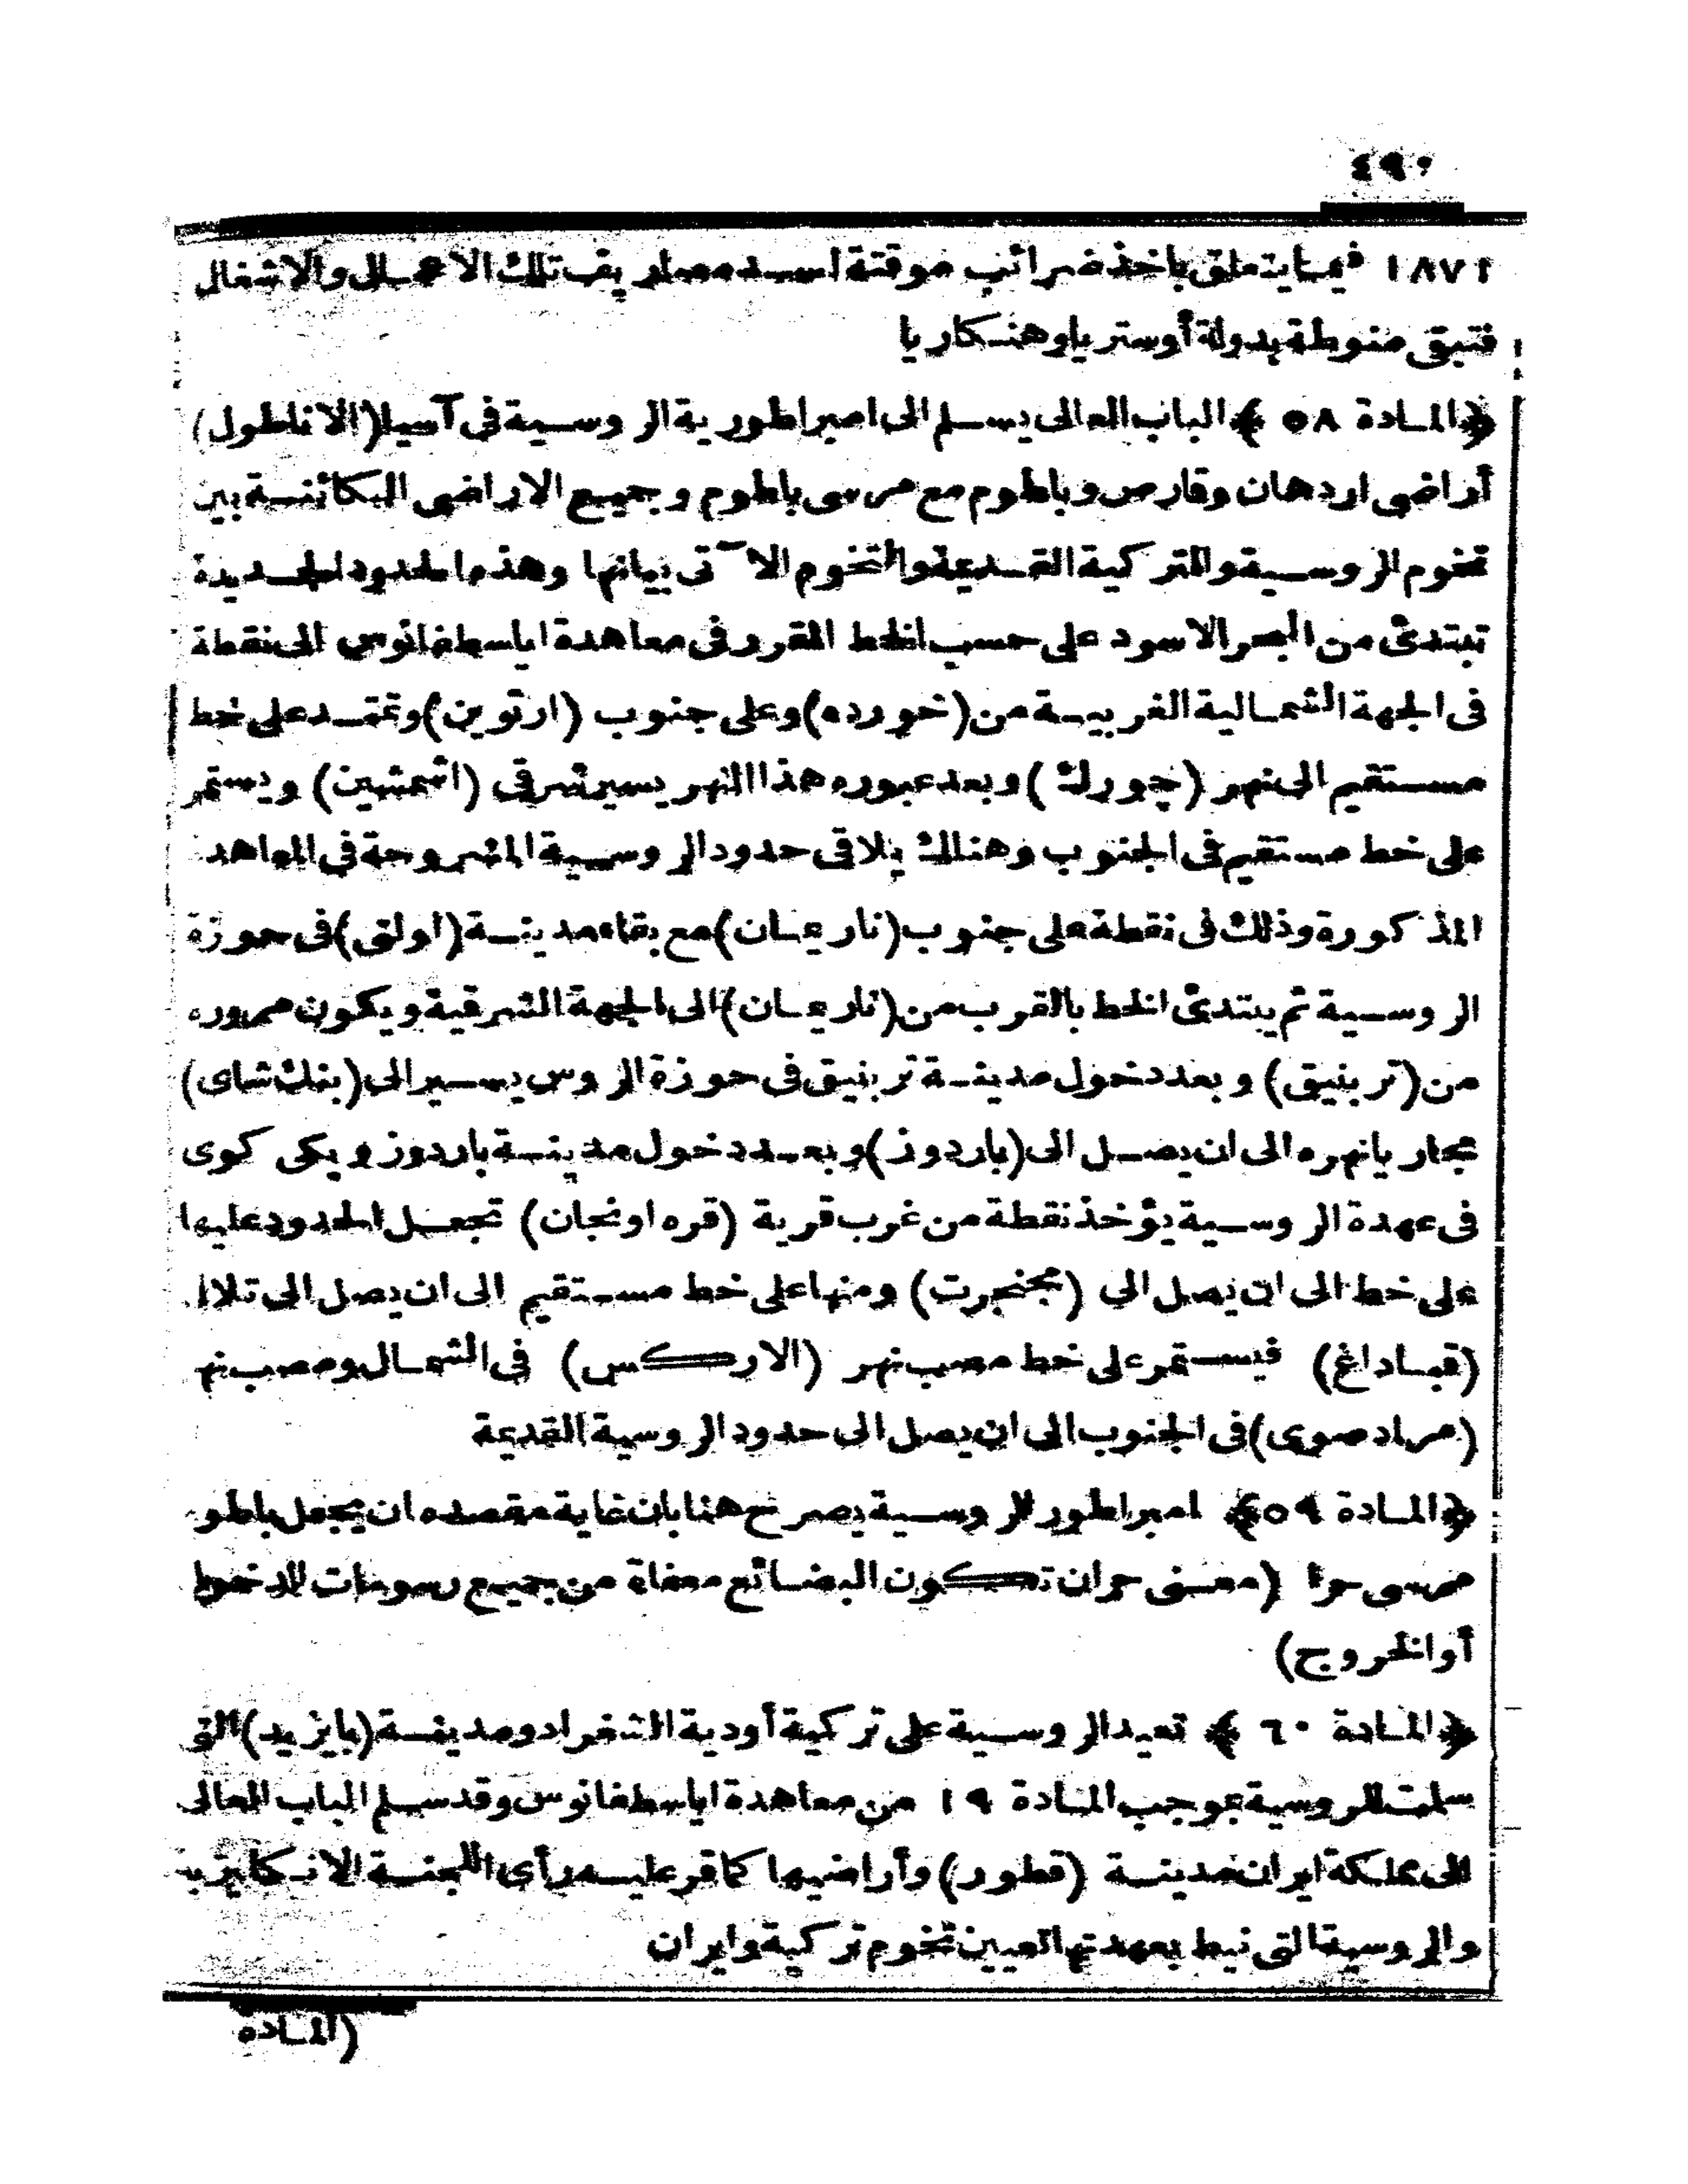 ٤٩٠
١٨٧١ فيما يتعلق باخذ ضرائب موقتة لسد مصاريف تلك الاعمال والاشغال
فتبقى منوطة بدولة أوستريا وهنكاريا
﴿المادة ٥٨﴾ الباب العالى يسلم الى امبراطورية الروسية فى آسيا (الاناطول)
أراضى اردهان وقارص وباطوم مع مرسى باطوم وجميع الاراضى الكائنة بين
تخوم الروسية والتركية القديمة والتخوم الآتى بيانها وهذه الحدود الجديدة
تبتدئ من البحر الاسود على حسب الخط المقرر فى معاهدة اياسطفانوس الى نقطة
فى الجهة الشمالية الغربية من (خورده) وعلى جنوب (ارتوين) وتمتد على خط
مستقيم الى نهر (چورك) وبعد عبوره هذا النهر يسير شرقى (اشمشين) ويستمر
على خط مستقيم فى الجنوب وهناك يلاقى حدود الروسية المشروحة فى المعاهد
المذكورة وذلك فى نقطة على جنوب (ناريمان) مع بقاء مدينة (اولتى) فى حوزة
الروسية ثم يبتدئ الخط بالقرب من (ناريمان) الى الجهة الشرقية ويكون مروره
من (تربنيق) وبعد دخول مدينة تربنيق فى حوزة الروس يسير الى (بنك شاى)
مجاريا نهره الى ان يصل الى (باردوز) وبعد دخول مدينة باردوز ويكى كوى
فى عهدة الروسية يؤخذ نقطة من غرب قرية (قره اونجان) تجعل الحدود عليها
على خط الى ان يصل الى (مجنجرت) ومنها على خط مستقيم الى ان يصل الى تلال
(قباداغ) فيستمر على خط مصب نهر (الاركس) فى الشمال ومصب نهر
(مراد صوى) فى الجنوب الى ان يصل الى حدود الروسية القديمة
﴿المادة ٥٩﴾ امبراطور الروسية يصرح هنا بان غاية مقصده ان يجعل باطو
مرسى حرا (معنى حر ان تكون البضائع معفاة من جميع رسومات الدخول
أو الخروج)
﴿المادة ٦٠﴾ تعيد الروسية على تركية أودية الشغراد ومدينة (بايزيد) التى
سلمت للروسية بموجب المادة ١٩ من معاهدة اياسطفانوس وقد سلم الباب العالى
الى مملكة ايران مدينة (قطور) وأراضيها كما قر عليه رأى اللجنة الانكليزية
والروسية التى نيط بعهدتها تعيين تخوم تركية وايران
(المادة